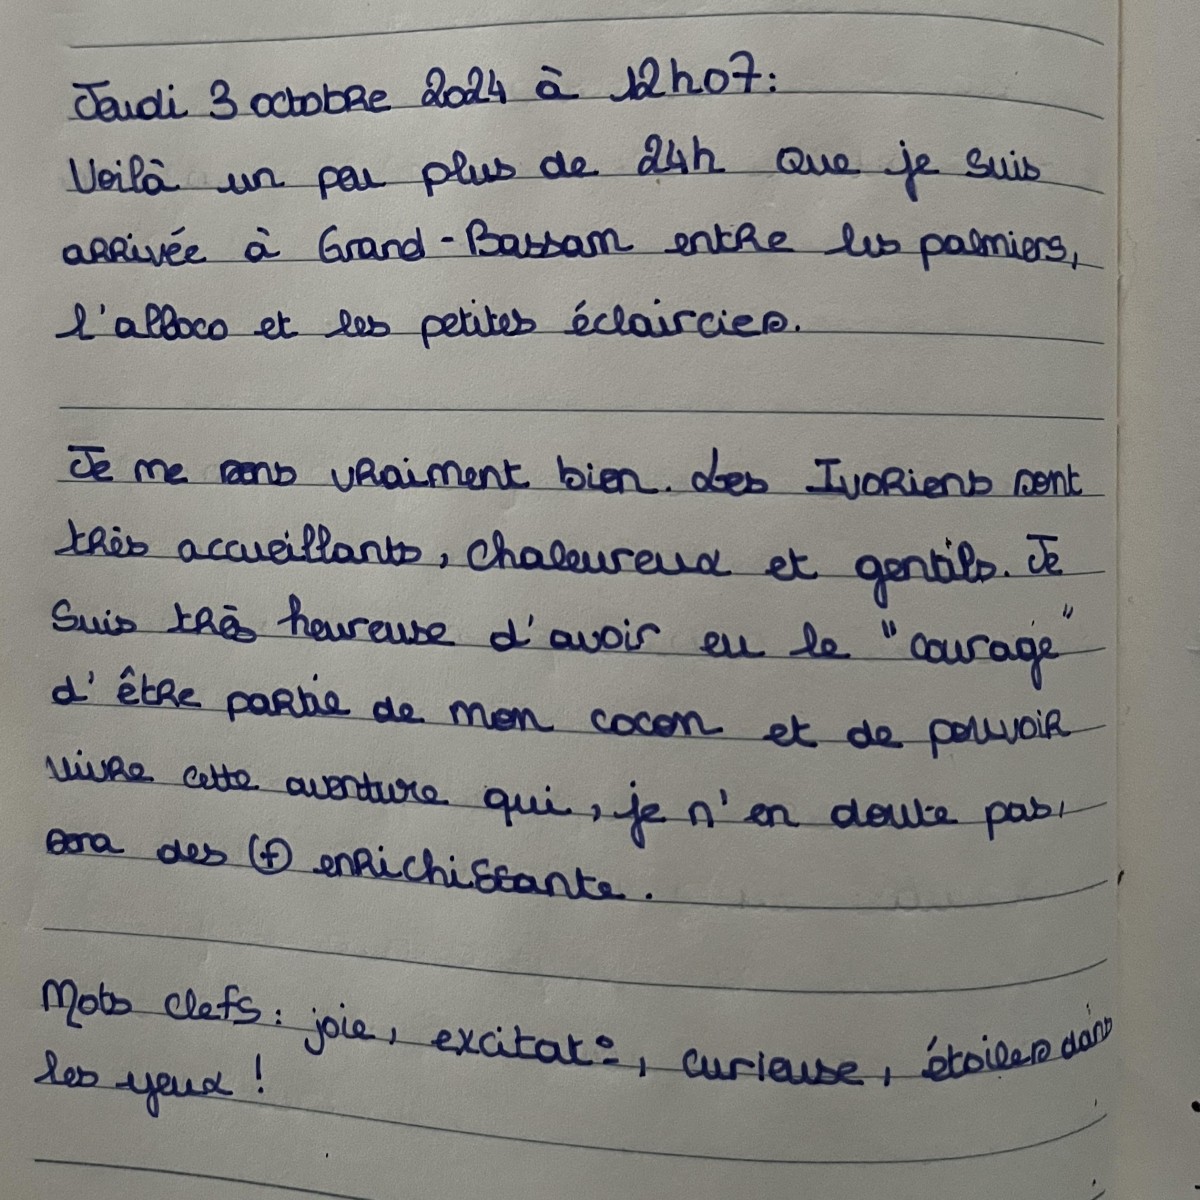 Jeudi 3 octobre 2024 à 12h07:
Voilà un peu plus de 24h que je suis
arrivée à Grand-Bassam entre les palmiers,
l'alloco et les petites éclaircies.
Je me sens vraiment bien. Les Ivoriens sont
très accueillants, chaleureux et gentils. Je
suis très heureuse d'avoir eu le "courage"
d'être partie de mon cocon et de pouvoir
vivre cette aventure qui, je n'en doute pas,
sera des (+) enrichissante.
Mots clefs: joie, excitat°, curieuse, étoiles dans
les yeux !